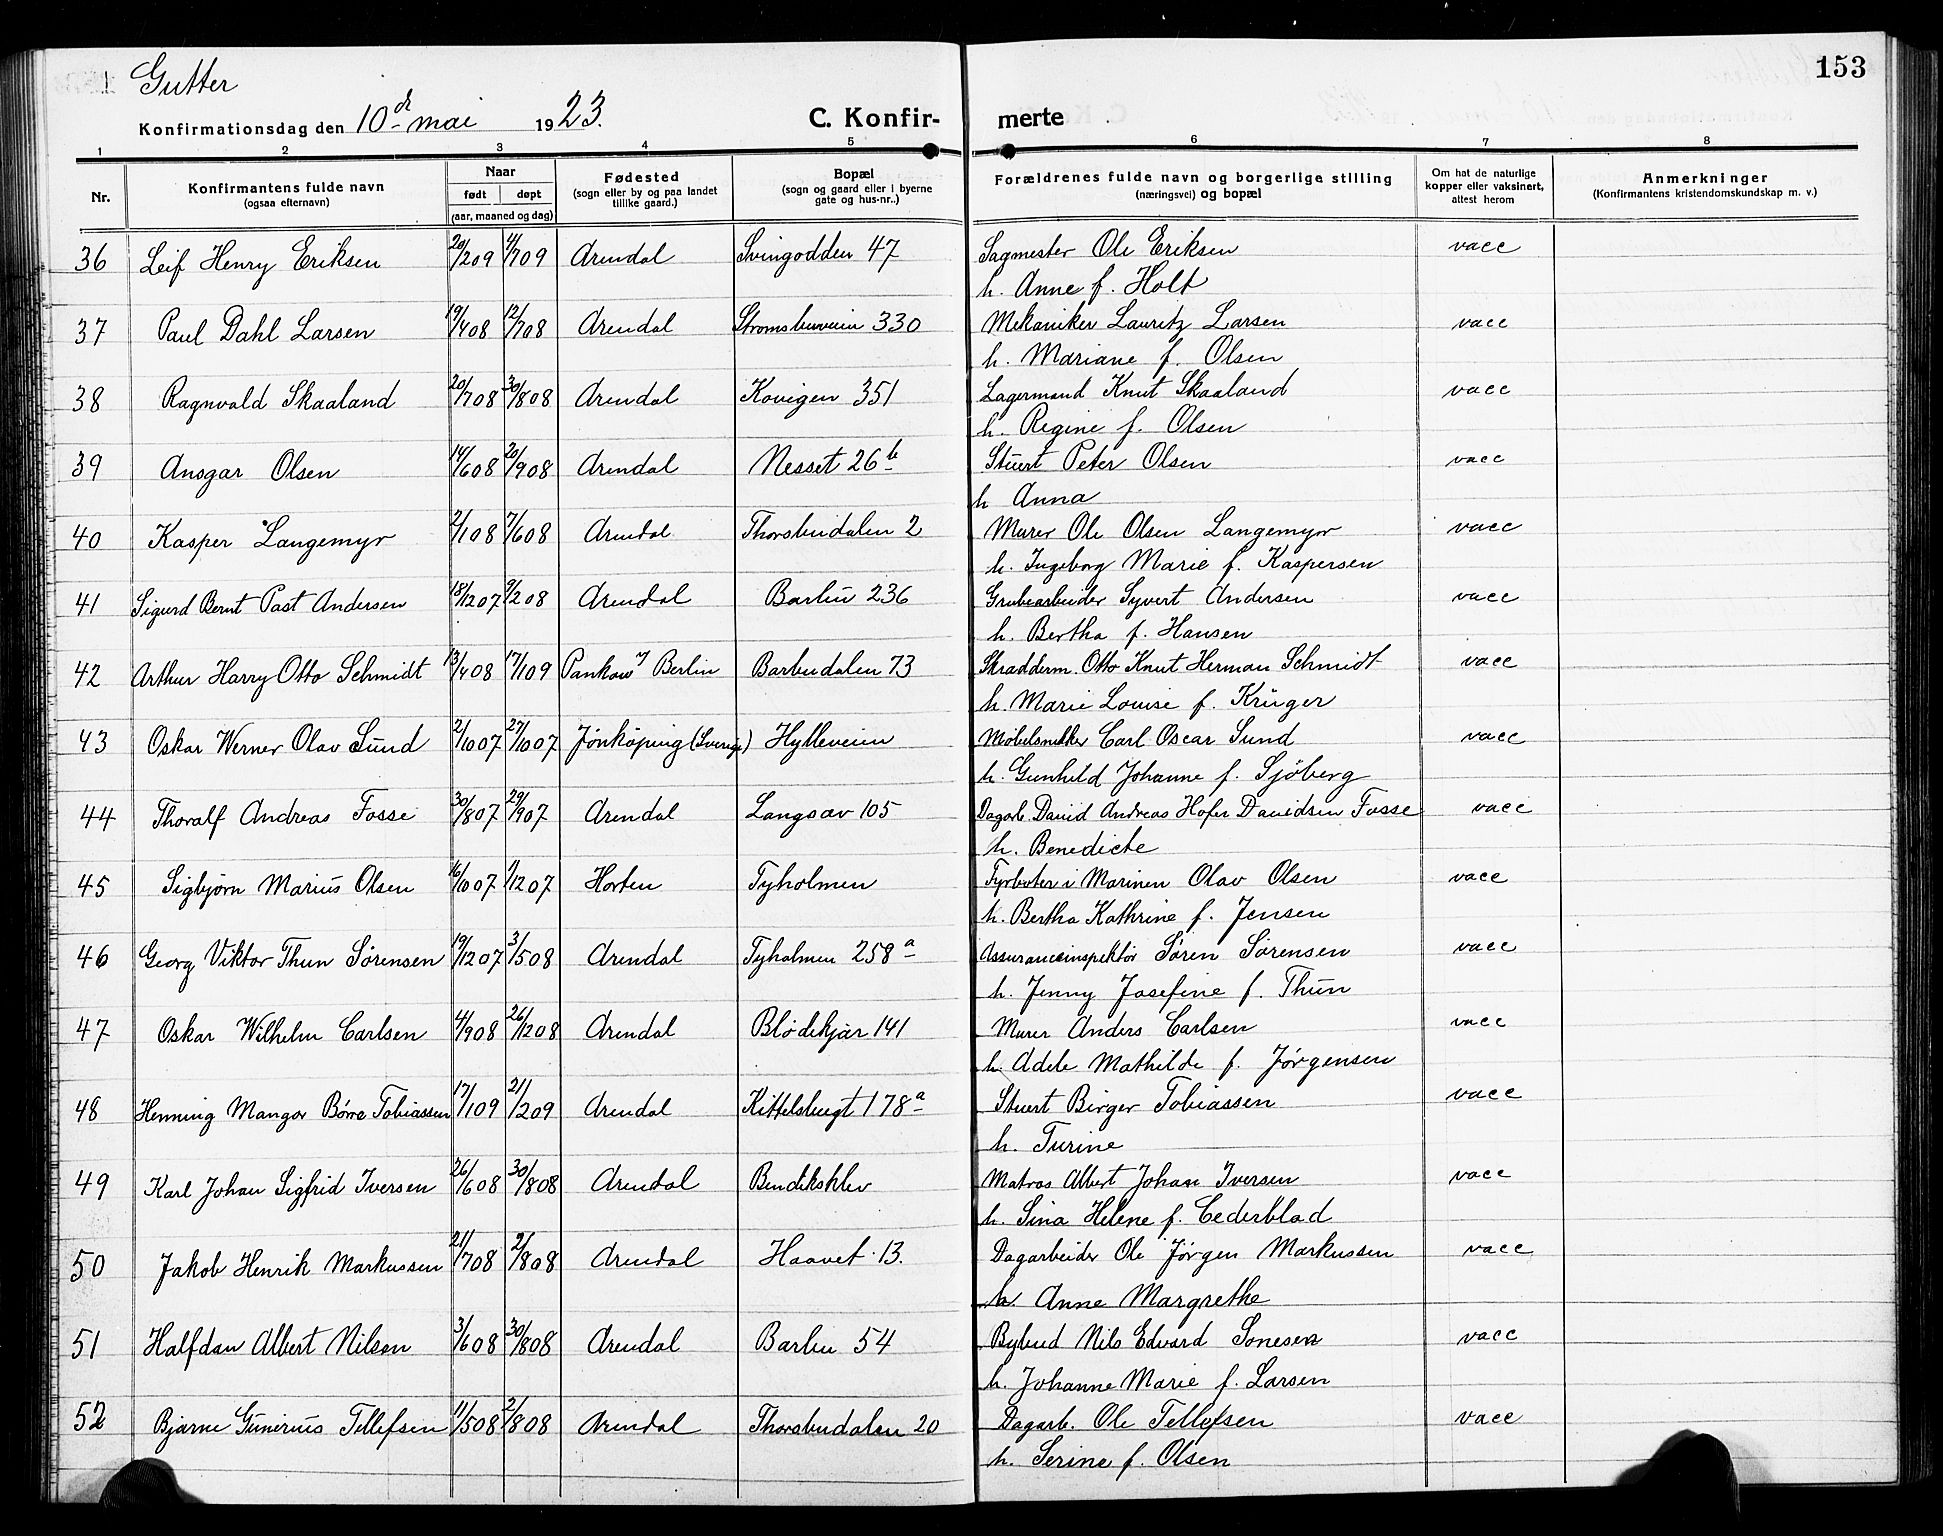 Gutter
153
Konfirmationsdag den 10d mai 1923.
C. Konfirmerte
1 2 3 4 5 6 7 8
Nr. Konfirmantens fulde navn (ogsaa efternavn) Naar født døpt (aar, maaned og dag) Fødested (sogn eller by og paa landet tillike gaard.) Bopæl (sogn og gaard eller i byerne gate og hus-nr..) Forældrenes fulde navn og borgerlige stilling (næringsvei) og bopæl Om hat de naturlige kopper eller vaksinert, attest herom Anmerkninger (Konfirmantens kristendomskundskap m. v.)
36 Leif Henry Eriksen 20/2 09 4/7 09 Arendal Svingodden 47 Sagmester Ole Eriksen vacc
h. Anne f. Holt
37 Paul Dahl Larsen 19/4 08 12/7 08 Arendal Stromsbuveien 330 Mekaniker Lauritz Larsen vacc
h. Mariane f. Olsen
38 Ragnvald Skaaland 20/7 08 30/8 08 Arendal Kovigen 351 Lagermand Knut Skaaland vacc
h. Regine f. Olsen
39 Ansgar Olsen 14/6 08 20/9 08 Arendal Nesset 26b Stuert Peter Olsen vacc
h Anna
40 Kasper Langemyr 2/1 08 7/6 08 Arendal Thorsbudalen 2 Murer Ole Olsen Langemyr vacc
h. Ingeborg Marie f. Kaspersen
41 Sigurd Bernt Past Andersen 18/12 07 9/2 08 Arendal Barbu 236 Grubearbeider Syvert Andersen vacc
h. Bertha f. Hansen
42 Arthur Harry Otto Schmidt 13/4 08 17/1 09 Pankow Berlin Barbudalen 73 Skradderm. Otto Knut Herman Schmidt vacc
h. Marie Louise f. Krüger
43 Oskar Werner Olav Sund 2/10 07 27/10 07 Jönköping (Sverige) Hylleveien Möbelsnekker Carl Oscar Sund vacc
h. Gunhild Johanne f. Sjöberg
44 Thoralf Andreas Fosse 30/8 07 29/9 07 Arendal Langsæv 105 Dagarb. David Andreas Hofer Davidsen Fosse vacc
h. Benedicte
45 Sigbjørn Marius Olsen 16/10 07 1/12 07 Horten Tyholmen Fyrbøter i Marinen Olav Olsen vacc
h. Bertha Kathrine f. Jensen
46 Georg Viktor Thun Sørensen 19/12 07 3/5 08 Arendal Tyholmen 258a Assuranceinspektør Søren Sørensen vacc
h. Jenny Josefine f. Thun
47 Oskar Wilhelm Carlsen 4/9 08 26/12 08 Arendal Blödekjær 141 Murer Anders Carlsen vacc
h. Adele Mathilde f. Jörgensen
48 Henning Mangor Børre Tobiassen 17/1 09 21/2 09 Arendal Kittelsbugt 178a Stuert Birger Tobiassen vacc
h. Turine
49 Karl Johan Sigfrid Iversen 26/6 08 30/8 08 Arendal Bendiksklev Matros Albert Johan Iversen vacc
h. Sina Helene f. Cederblad
50 Jakob Henrik Markussen 21/7 08 2/8 08 Arendal Haavet 13. Dagarbeider Ole Jörgen Markussen vacc
h. Anne Margrethe
51 Halfdan Albert Nilsen 3/6 08 30/8 08 Arendal Barbu 54 Bybud Nils Edvard Sonesen vacc
h. Johanne Marie f. Larsen
52 Bjarne Gunerius Tellefsen 11/5 08 2/8 08 Arendal Thorsbudalen 20 Dagarb. Ole Tellefsen vacc
h. Serine f. Olsen